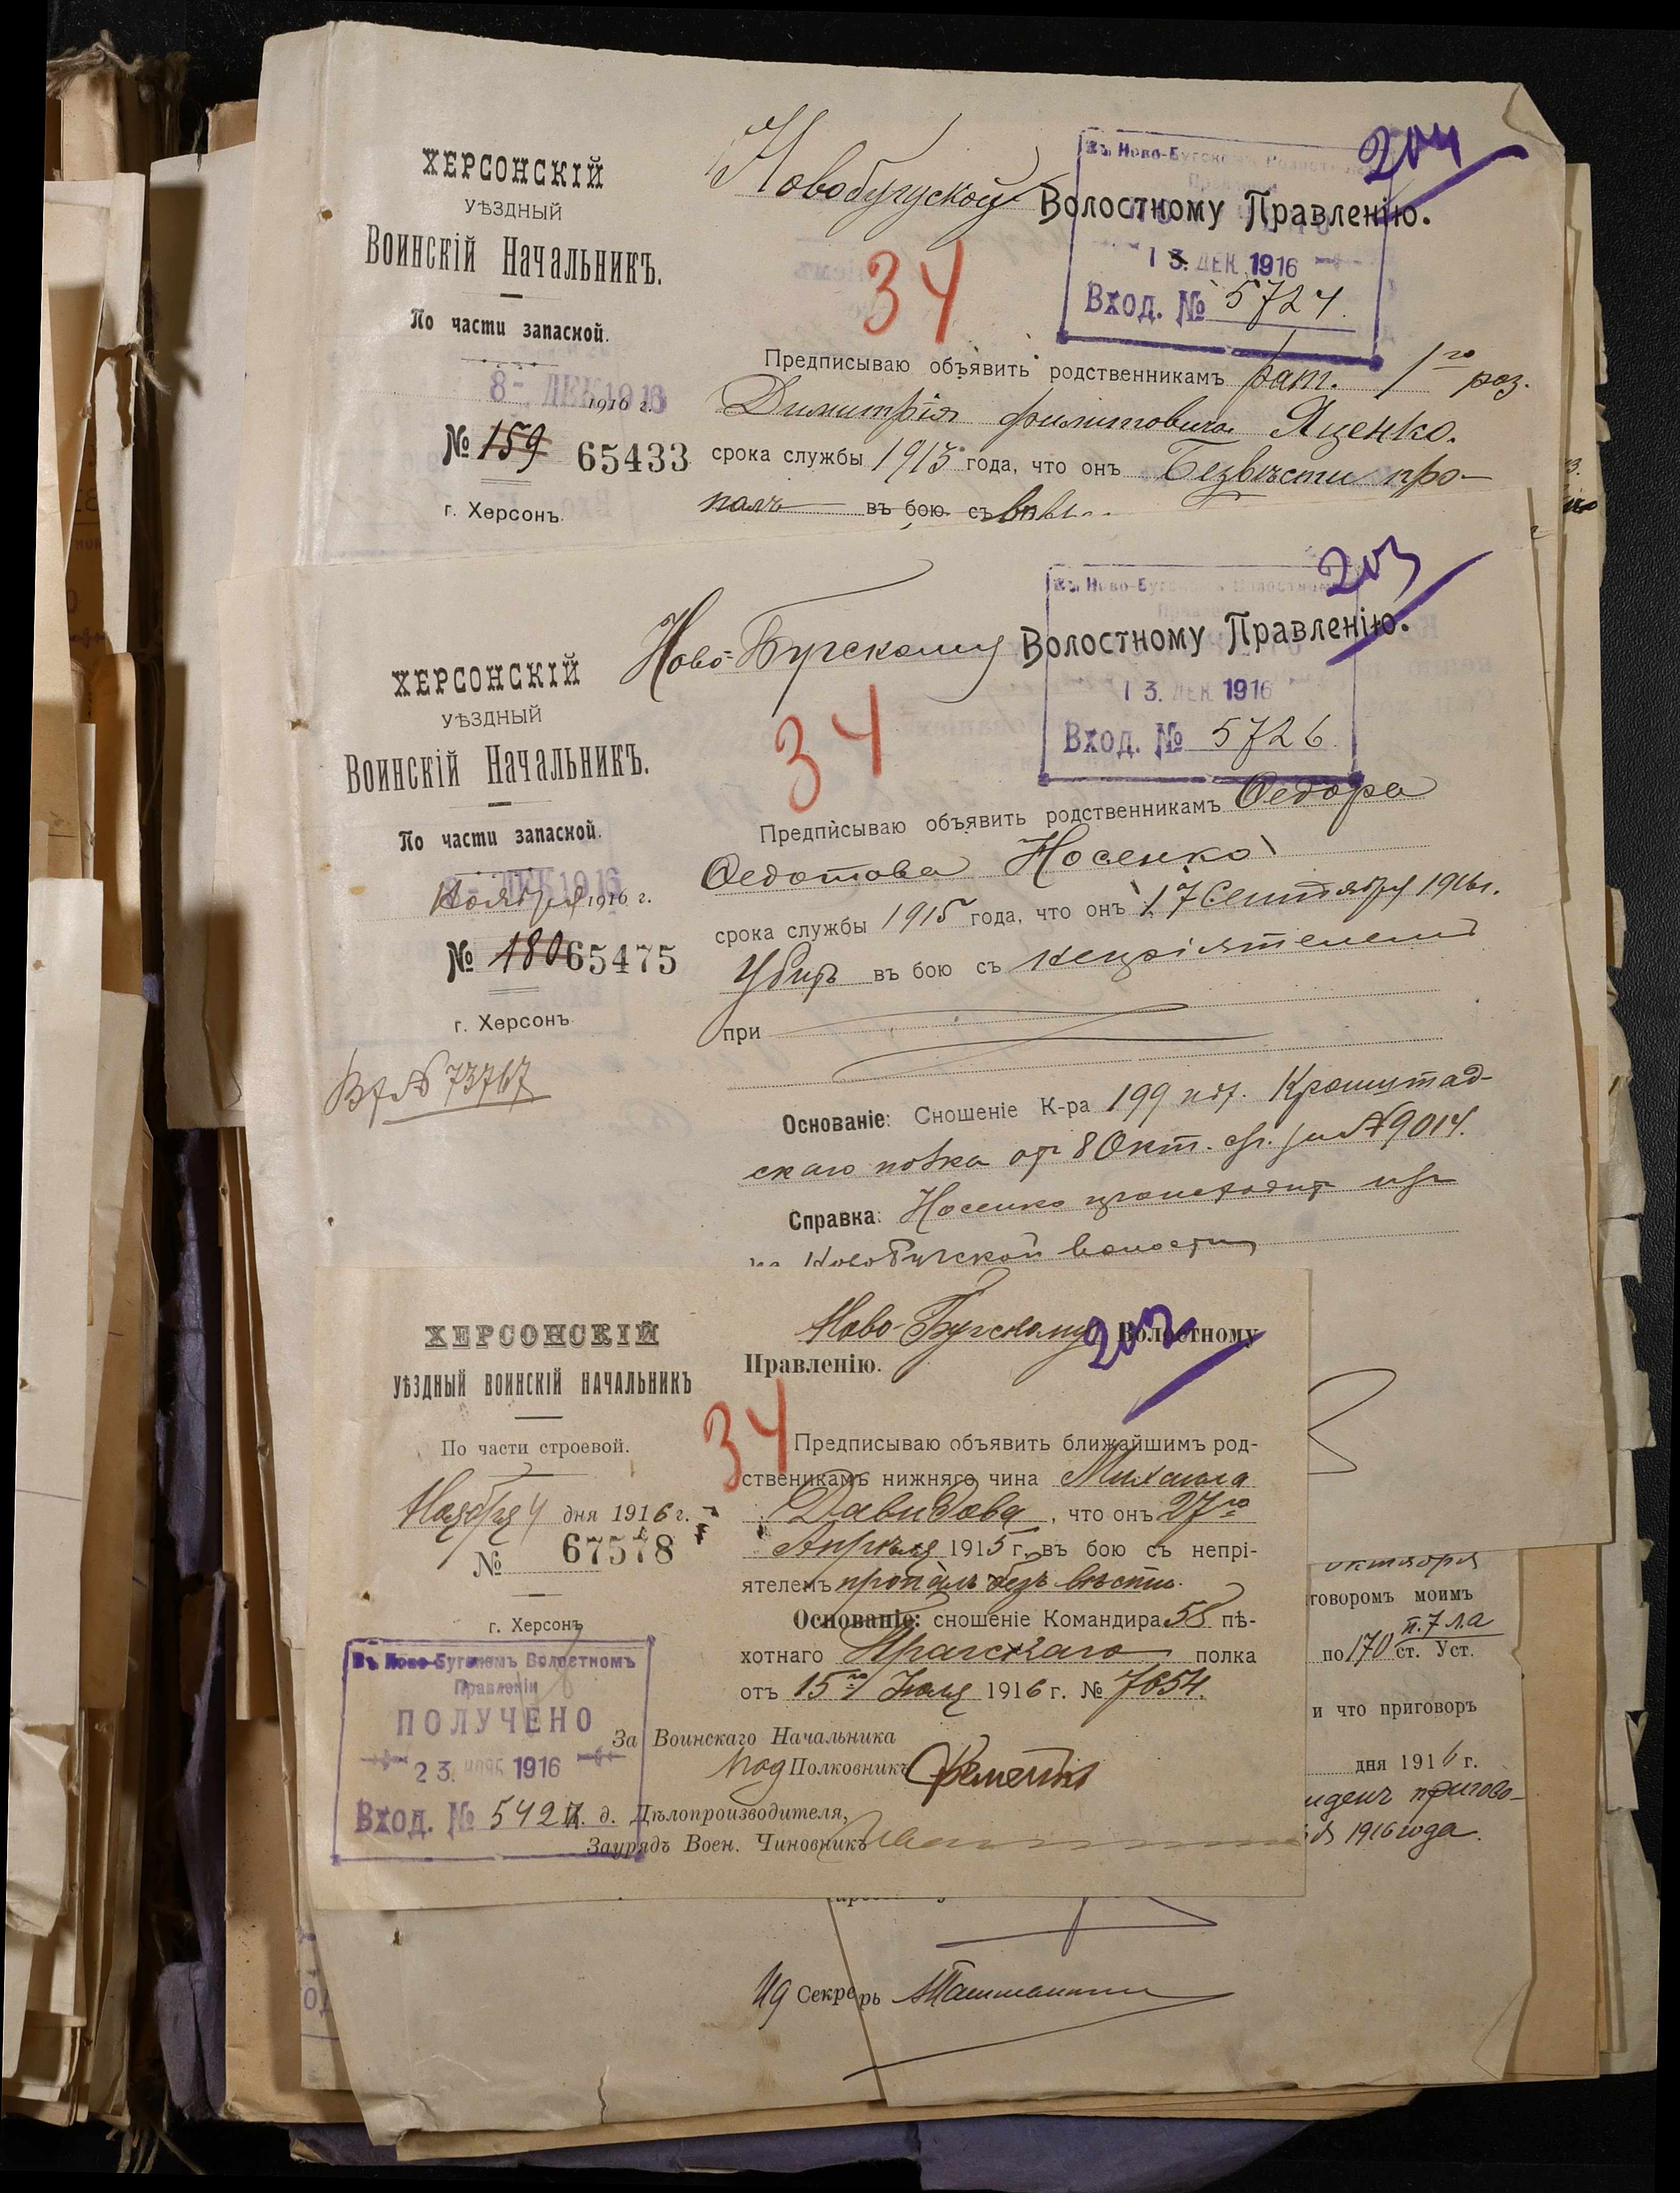 204
ХЕРСОНСКІЙ
УѢЗДНЫЙ
Воинскій Начальникъ.
По части запасной.
8 - ДЕК 1916
1916 г.
№ 159 65433
г. Херсонъ.
Новобугуской Волостному Правленію.
Въ Ново-Бугскомъ Волостномъ
Правленіи
13. ДЕК. 1916
Вход. № 5724.
34
Предписываю объявить родственникамъ рат. 1го раз.
Димитрія Филипповича Яценко.
срока службы 1913 года, что онъ Безвѣсти про-
палъ въ бою съ
203
ХЕРСОНСКІЙ
УѢЗДНЫЙ
Воинскій Начальникъ.
По части запасной.
8 - ДЕК 1916
Ноября 1916 г.
№ 180 65475
г. Херсонъ.
Вх № 73767
Ново-Бугскому Волостному Правленію.
Въ Ново-Бугскомъ Волостномъ
Правленіи
13. ДЕК 1916
Вход. № 5726
34
Предписываю объявить родственникамъ Ѳедора
Ѳедотова Носенко
срока службы 1915 года, что онъ 17 Сентября 1916г.
Убитъ въ бою съ непріятелемъ
при
Основаніе: Сношеніе К-ра 199 пѣх. Кронштад-
скаго полка от 8 Окт. с/г. за № 9014.
Справка: Носенко происходит изъ
Новобугской волости
202
ХЕРСОНСКІЙ
УѢЗДНЫЙ ВОИНСКІЙ НАЧАЛЬНИКЪ
По части строевой.
Ноября 4 дня 1916 г.
№ 67578
г. Херсонъ
Ново-Бугскому Волостному
Правленію.
34
Предписываю объявить ближайшимъ род-
ственикамъ нижняго чина Михаила
Давидова, что онъ 27го
Апрѣля 1915 г. въ бою съ непрі-
ятелемъ пропалъ безъ вѣсти.
Основаніе: сношеніе Командира 58 пѣ-
хотнаго Прагскаго полка
отъ 15го Іюля 1916 г. № 7654.
Въ Ново-Бугскомъ Волостномъ
Правленіи
ПОЛУЧЕНО
23. НОЯБ 1916
Вход. № 5427
За Воинскаго Начальника
Под Полковникъ
И. д. Дѣлопроизводителя,
Заурядъ Воен. Чиновникъ
октября
говоромъ моимъ
по 170 п. 7 л. а ст. Уст.
и что приговоръ
дня 1916 г.
пригово-
1916 года.
Ид Секрерь